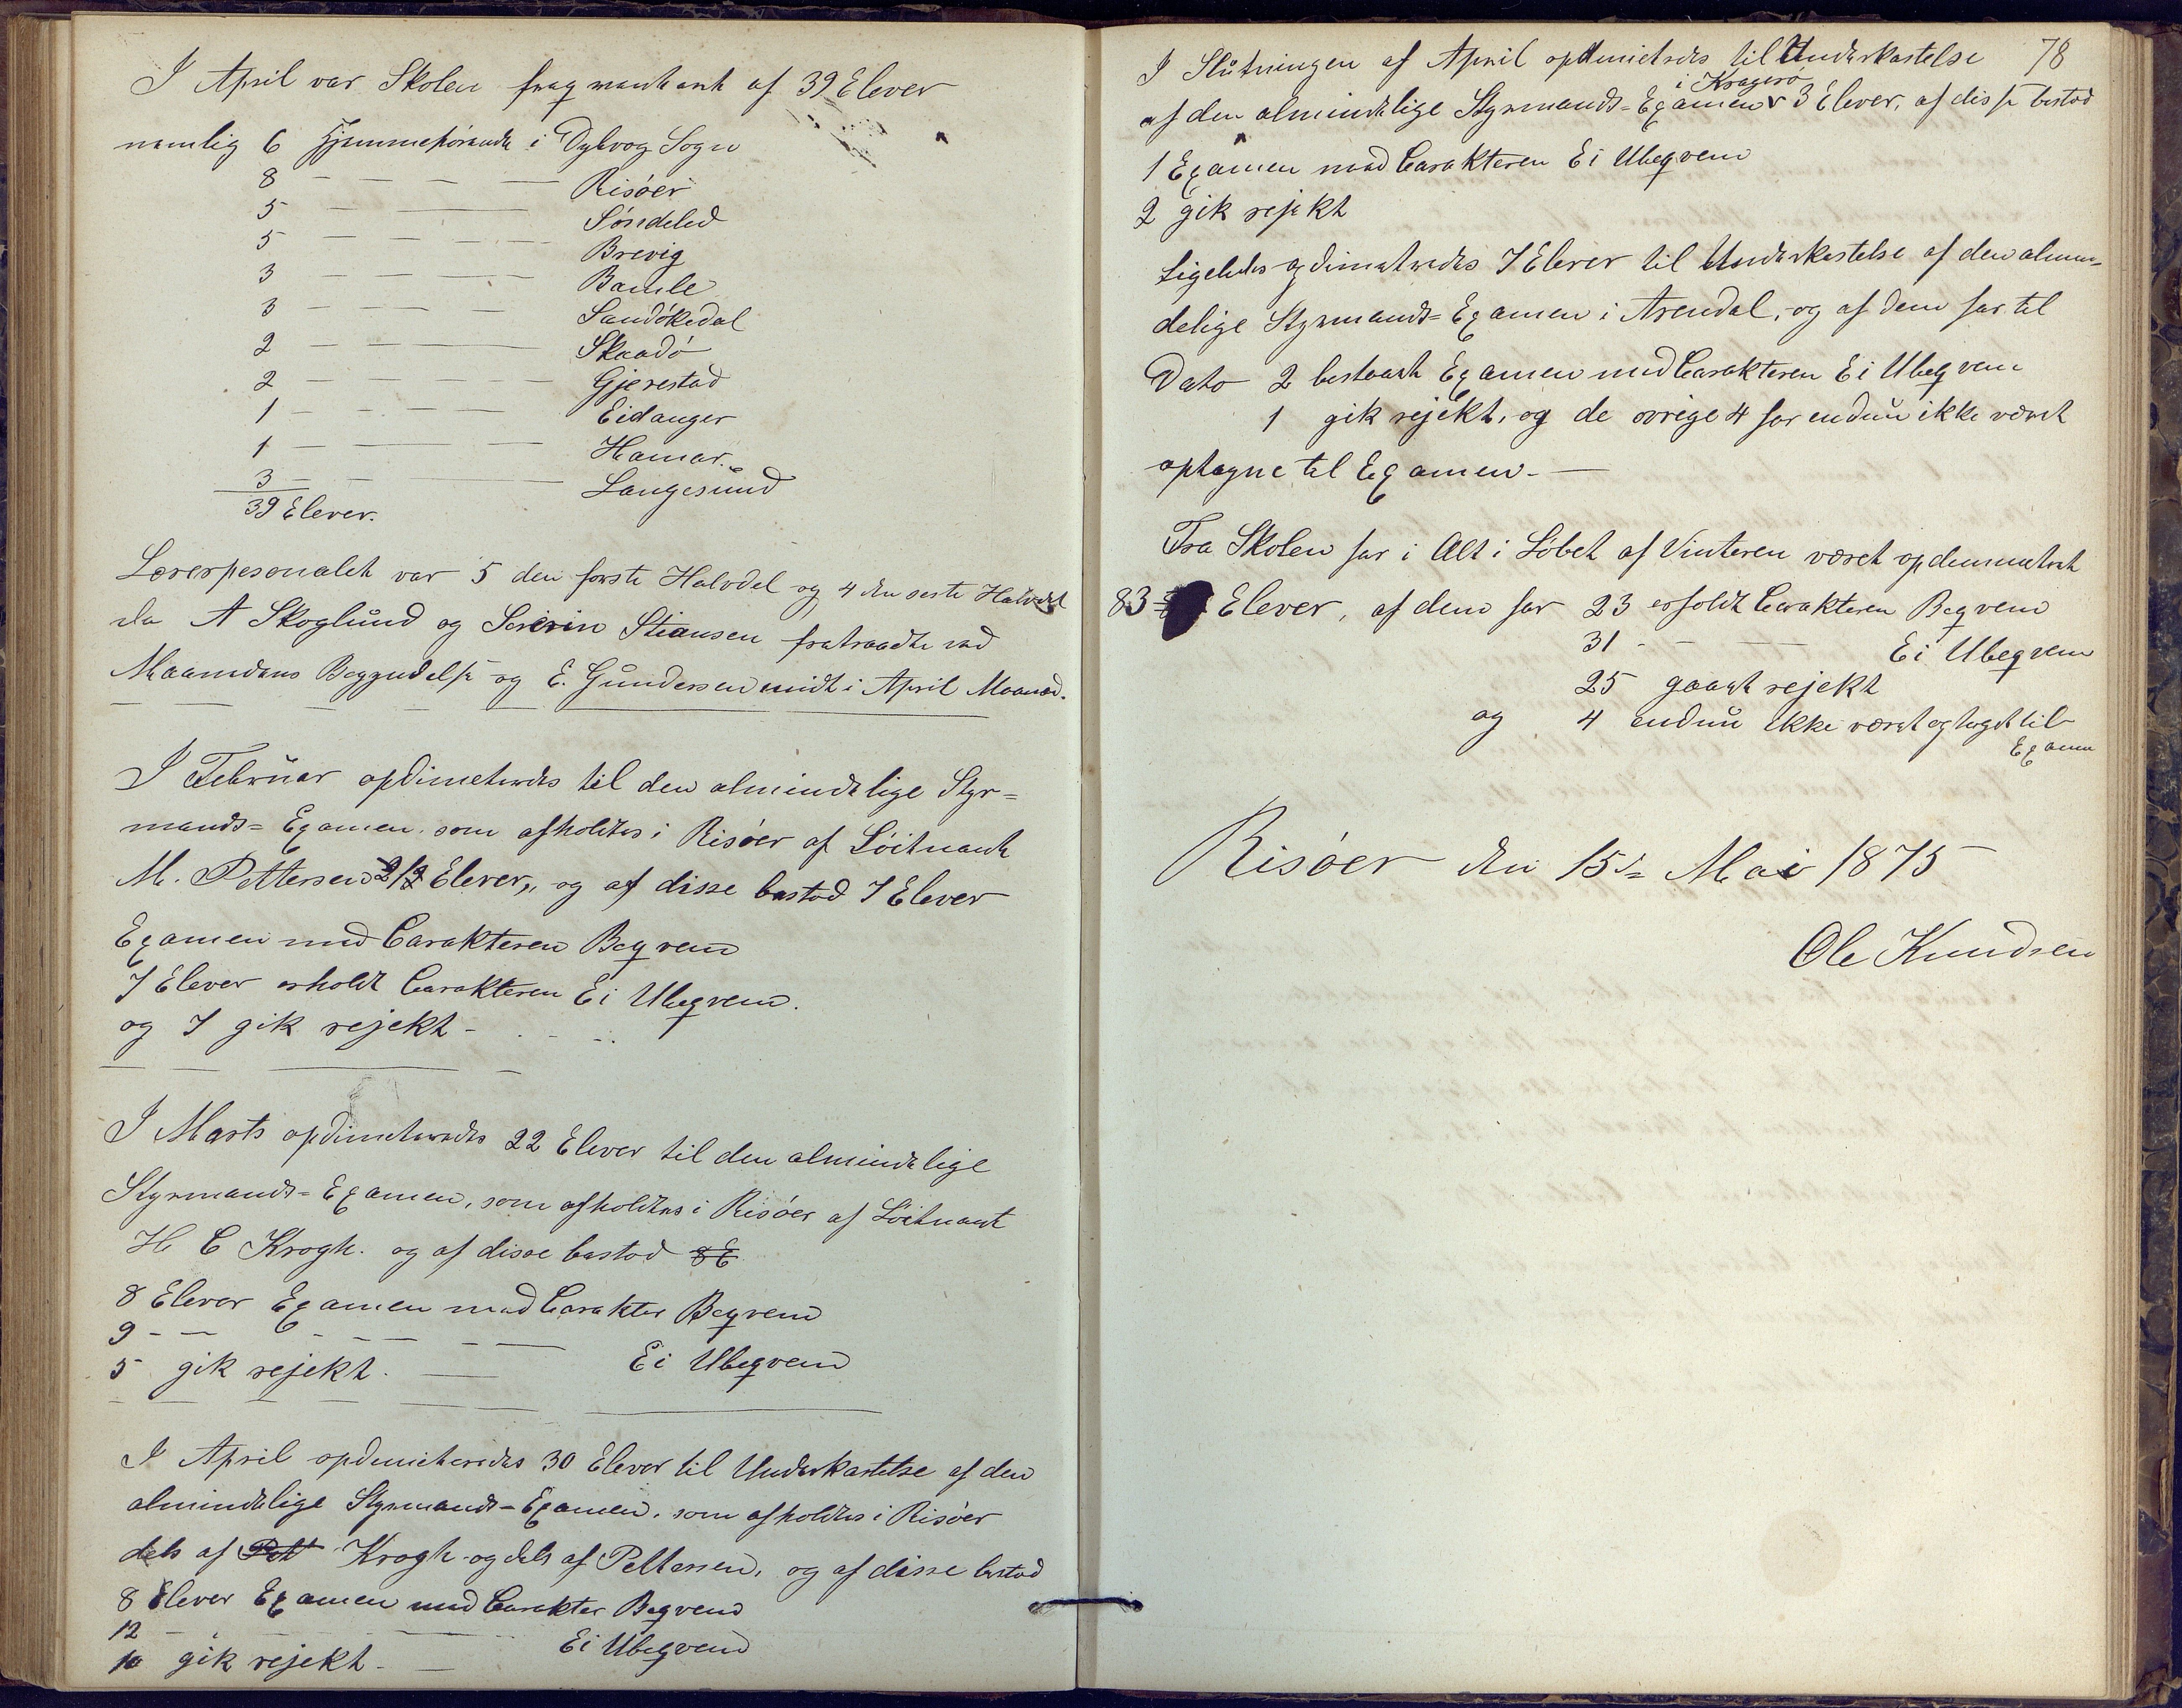 I April var Skolen freqventeret af 39 Elever
nemlig 6 Hjemmehørende i Dybvog Sogn
8 — — — — Risøer
5 — — — — Søndeled
5 — — — — Brevig
3 — — — — Bamle
3 — — — — Sandøkedal
2 — — — — Skaadø
2 — — — — Gjerestad
1 — — — — Eidanger
1 — — — — Hamar.
3 — — — — Langesund
39 Elever.
Lærerpesonalet var 5 den første Halvdel og 4 den seste Halvdel
da A Skoglund og Severin Stiansen fratraadte ved
Maanedens Begyndelse og E. Gundersen midt i April Maaned.
I Februar opdimeteredes til den almindelige Styr=
mands=Examen som afholdtes i Risøer af Løitnant
M. Pettersen 21 Elever, og af disse bestod 7 Elever
Examen med Carakteren Beqvem
7 Elever erholdt Carakteren Ei Ubeqvem.
og 7 gik rejekt -
I Marts opdimeteredes 22 Elever til den almindelige
Styrmands=Examen, som afholdtes i Risøer af Løitnant
H C Krogh. og af disse bestod 8 E
8 Elever Examen med Carakter Beqvem
9 - — — — — Ei Ubeqvem
5 gik rejekt. —
I April opdimeteredes 30 Elever til Underkastelse af den
almindelige Styrmands=Examen, som afholdtes i Risøer
dels af Pett Krogh og dels af Pettersen, og af disse bestod
8 Elever Examen med Carakter Beqvem
12 — — — — Ei Ubeqvem
10 gik rejekt. —
78
I Slutningen af April opdimitredes til Underkastelse
af den almindelige Styrmands=Examen i Kragerø 3 Elever, af disse bestod
1 Examen med Carakteren Ei Ubeqvem
2 gik rejekt
Ligeledes opdimeteredes 7 Elever til Underkastelse af den almin=
delige Styrmands=Examen i Arendal, og af dem har til
Dato 2 bestaaet Examen med Carakteren Ei Ubeqvem
1 gik rejekt, og de øvrige 4 har endnu ikke været
optagne til Examen. —
Fra Skolen har i Alt i Løbet af Vinteren været opdemmeteret
83 Elever, af dem har 23 erholdt Carakteren Beqvem
31 - — — Ei Ubeqvem
25 gaaet rejekt
og 4 endnu ikke været optaget til
Examen
Risøer den 15de Mai 1875
Ole Knudsen